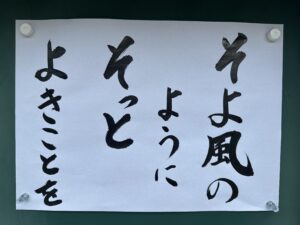 そよ風の
ように
そっと
よきことを